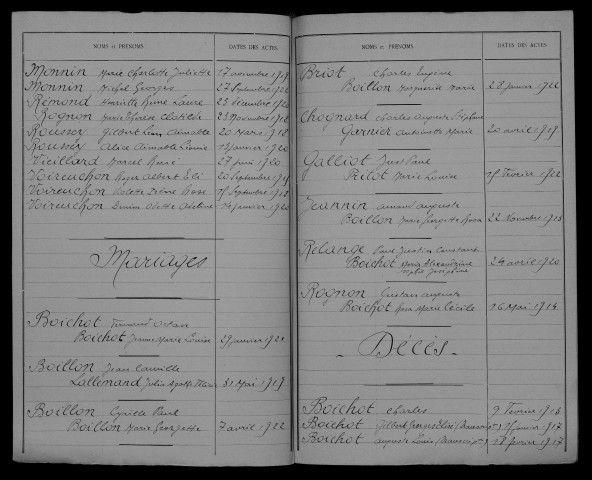 NOMS et PRÉNOMS DATES DES ACTES
Monnin Marie Charlotte Juliette 17 novembre 19
Monnin Michel Georges 27 Septembre
Rémond Henriette Reine Laure 23 décembre
Rognon Marie Thérèse Clotilde 23 Novembre
Roussey Gilbert Léon Aimable 20 mars
Roussey Alice Aimable Léonie janvier 20
Vieillard Marcel René 27 juin 20
Voireuchon Roger Albert Eli 20 Septembre
Voireuchon Odette Irène Rose Septembre
Voireuchon Denise Odette janvier
Mariages
Boichot Fernand Octave
Boichot Jeanne Marie Louise 29 janvier 1921
Boillon Jean Camille
Lallemand Julia Marie 31 Mai 1919
Boillon Cyrille Paul
Boillon Marie Georgette 7 avril 1922
NOMS et PRÉNOMS DATES DES ACTES
Briot Charles Eugène
Boillon Marguerite Marie 28 janvier 1922
Chognard Charles Auguste Stéphane
Garnier Antoinette Marie 20 avril 19
Galliot Paul
Prétot Marie Louise Février 1922
Jeannin Armand Auguste
Boillon Marie Georgette Rosa 22 Novembre 1913
Relange Paul Justin Constant
Boichot Maria Alexandrine 24 avril 1920
Joséphine
Rognon Gustave Auguste
Boichot Marie Cécile 16 Mai 1914
Décès.
Boichot Charles 9 Février 191
Boichot Gilbert Georges (Transcripon) janvier 1917
Boichot Auguste Louis (Transcripon) février 1917